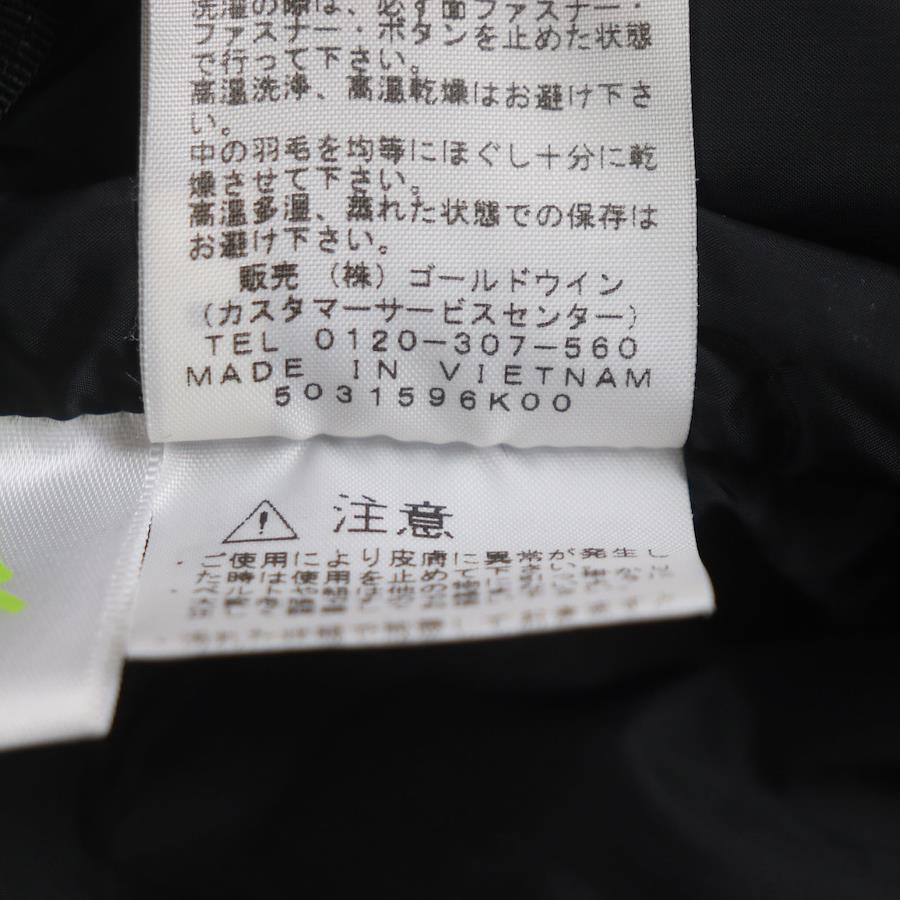 洗濯の際は、必ず面ファスナー・
ファスナー・ボタンを止めた状態
で行って下さい。
高温洗浄、高温乾燥はお避け下さ
い。
中の羽毛を均等にほぐし十分に乾
燥させて下さい。
高温多湿、蒸れた状態での保存は
お避け下さい。
販売 （株）ゴールドウイン
（カスタマーサービスセンター）
TEL 0120-307-560
MADE IN VIETNAM
5031596K00
注意
・ご使用により皮膚に異常が発生し
た時は使用を止めて下さい。